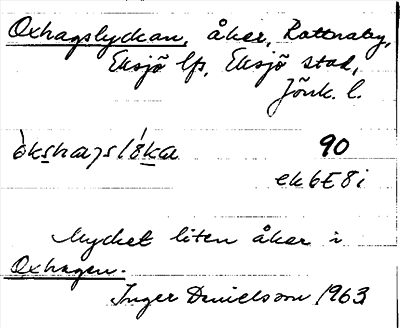 Oxhagslyckan, åker, Rattnaby,
Eksjö lfs, Eksjö stad,
Jönk. l.
òkshagslýka 90
ek 6E8i
Mycket liten åker i
Oxhagen.
Inger Danielsson 1963